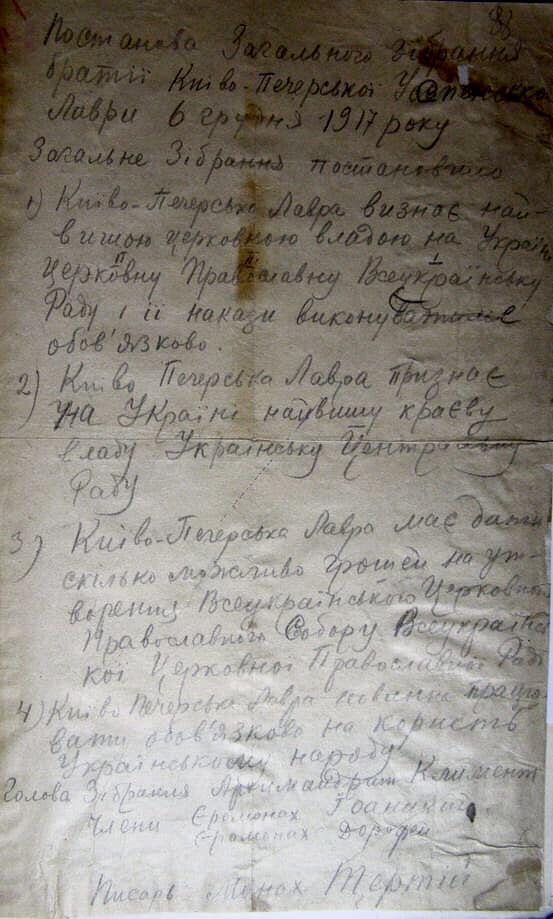 88
Постанова Загального Зібрання
братії Київо-Печерської Успенскої
Лаври 6 грудня 1917 року
Загальне Зібрання постановило
1) Київо-Печерська Лавра визнає най-
вищою церковною владою на Україні
II III I
Церковну Православну Всеукраїнську
Раду і її накази виконує
обов'язково.
2) Київо Печерська Лавра признає
на Україні найвищу краєву
владу Українську Центральну
Раду
3) Київо-Печерська Лавра має дати
скільки можливо грошей на ут-
ворення Всеукраїнського Церковного
Православного Собору Всеукраїнсь
кої Церковної Православної Ради
4) Київо Печерська Лавра повинна працю
вати обов'язково на користь
Українського народу
Голова Зібрання Архимандрит Климент
Члени Єромонах Іоаникий
Єромонах Дорофей
Писарь Монах Тертій